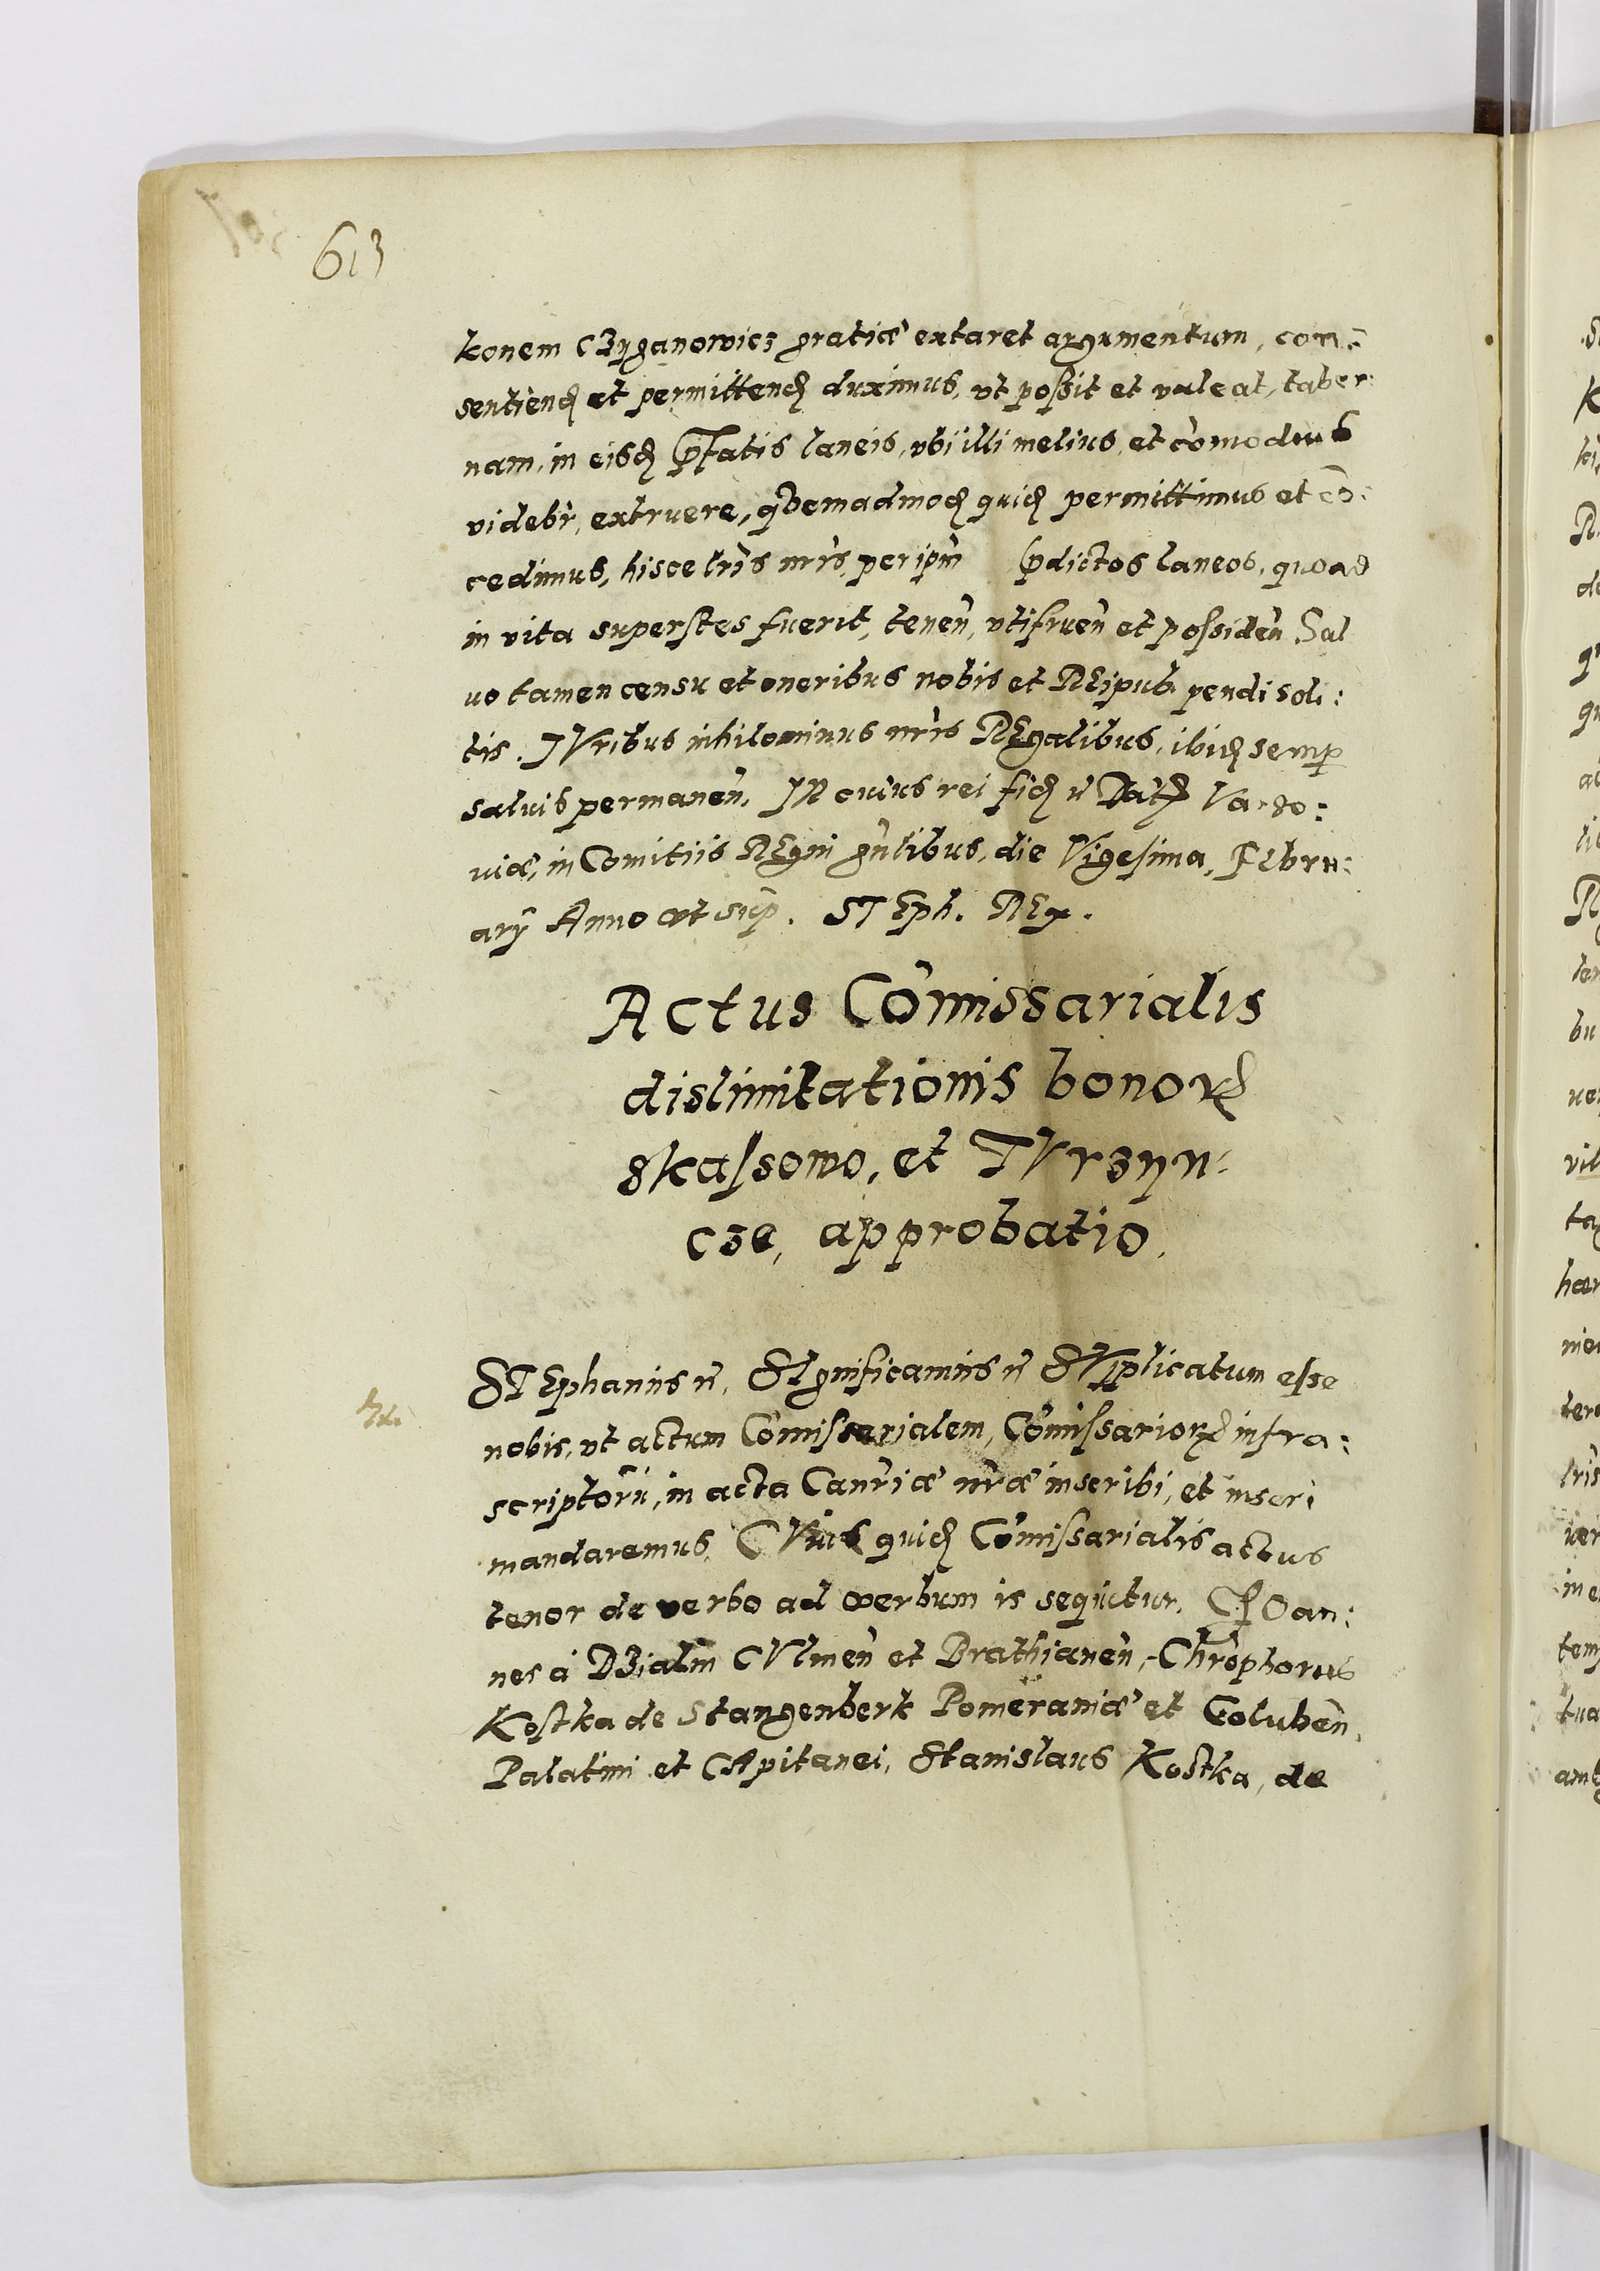 613
konem CZyganowicz gratiæ extaret argumentum, con:
sentiend et permittend duximus, vt poßit et valeat, taber
nam, in eisd pfatis laneis, vbi illi melius, et comodius
videbr, extruere, qvemadmod quid permittimus et co:
cedimus, hisce lris nris, per ipm pdictos laneos, quoad
in vita superstes fuerit, tenen, vtifruen et possiden. Sal
uo tamen censu et oneribus nobis et REipub. pendi soli:
tis. IVribus nihilominus nris REgalibus, ibid semp
saluis permanen. IN cuius rei fid n Dat Varso:
uiæ, in Comitiis REgni gnlibus, die Vigesima, FEbru:
arÿ Anno vt sup. STEph. REx.
Actus Comissarialis
dislimitationis bonor
Skassowo, et TVrzyn:
cze, approbatio.
STEphanus n. SIgnificamus n SVpplicatum esse
nobis, vt actum Comissarialem, Comissarior infra:
scriptoru, in acta Canriæ nræ inscribi, et inseri
mandaremus. CVius quid Comissarialis actus
tenor de verbo ad verbum is sequitur. IOan:
nes à DZialin CVlmen et Brathianen, Chrophorus
Kostka de Stangenberk Pomeraniæ et Goluben,
Palatini et CApitanei, Stanislaus Kostka, de